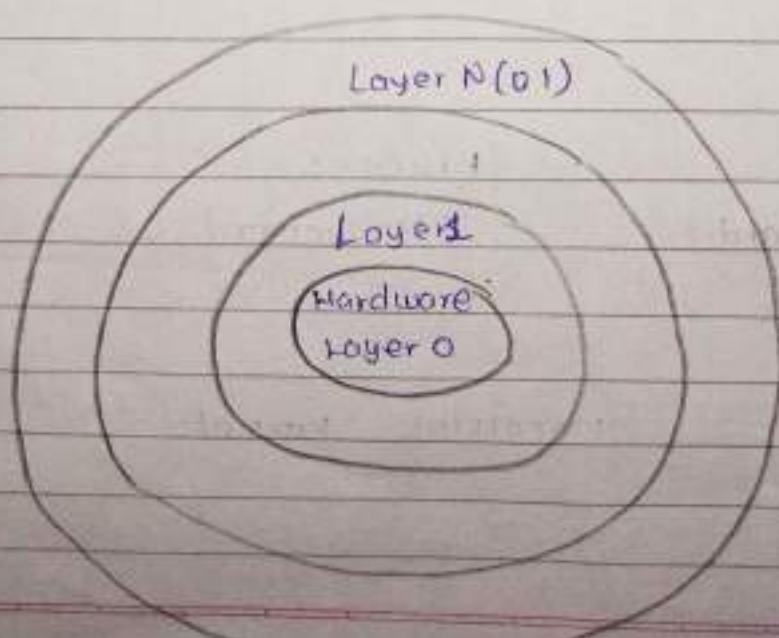 Layer N(01)
Layer1
Hardware
Layer 0